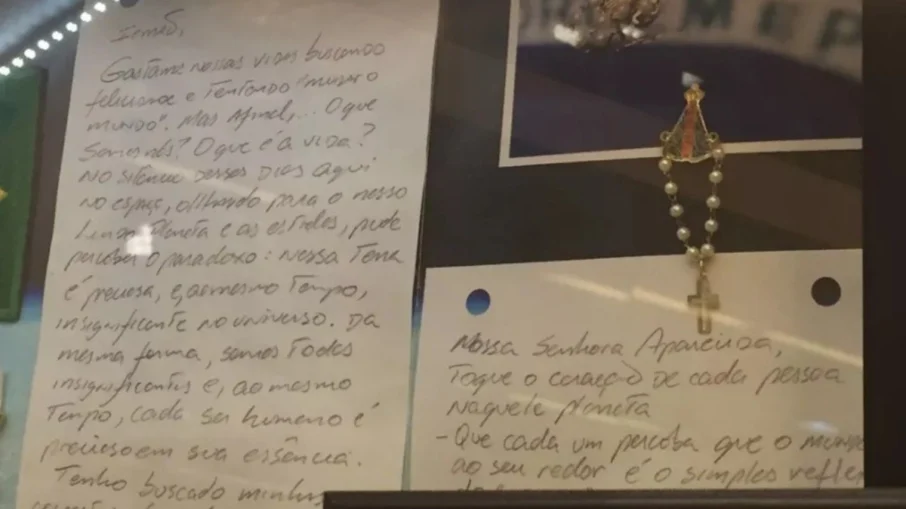 Irmão,
Gastamos nossas vidas buscando
felicidade e tentando "mudar o
mundo". Mas afinal,... O que
somos nós? O que é a vida?
No silêncio desses dias aqui
no espaço, olhando para o nosso
Lindo Planeta e as estrelas, pude
perceber o paradoxo: nossa Terra
é preciosa, e, ao mesmo tempo,
insignificante no universo. Da
mesma forma, somos todos
insignificantes e, ao mesmo
tempo, cada ser humano é
precioso em sua essência.
Tenho buscado minhas
Nossa Senhora Aparecida,
Toque o coração de cada pessoa
naquele planeta
- Que cada um perceba que o mundo
ao seu redor é o simples reflexo